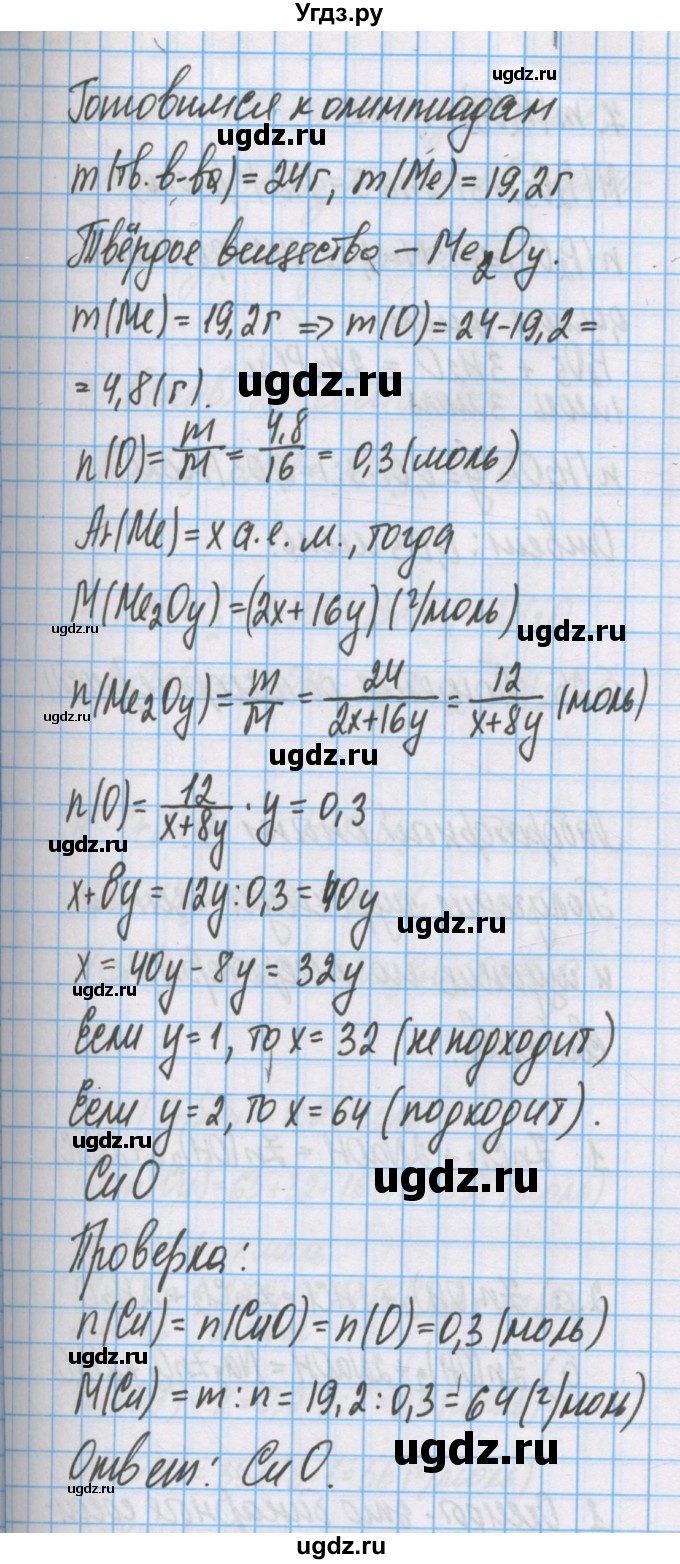 Угдз.ру
ugdz.ru
Готовимся к олимпиадам
ugdz.ru
m(тв. в-ва) = 24г, m(Me) = 19,2г
Твёрдое вещество – Me₂Oy.
m(Me) = 19,2г => m(O) = 24-19,2 =
= 4,8(г).
ugdz.ru
n(O) = m/M = 4,8/16 = 0,3 (моль)
Ar(Me) = x а.е.м., тогда
M(Me₂Oy) = (2x+16y) (г/моль)
ugdz.ru
ugdz.ru
n(Me₂Oy) = m/M = 24/(2x+16y) = 12/(x+8y) (моль)
ugdz.ru
ugdz.ru
n(O) = 12/(x+8y) · y = 0,3
ugdz.ru
x+8y = 12y:0,3 = 40y
ugdz.ru
x = 40y-8y = 32y
ugdz.ru
Если y=1, то x = 32 (не подходит)
Если y=2, то x = 64 (подходит).
ugdz.ru
CuO
ugdz.ru
Проверка:
n(Cu) = n(CuO) = n(O) = 0,3 (моль)
ugdz.ru
M(Cu) = m : n = 19,2 : 0,3 = 64 (г/моль)
ugdz.ru
Ответ: CuO.
ugdz.ru
ugdz.ru